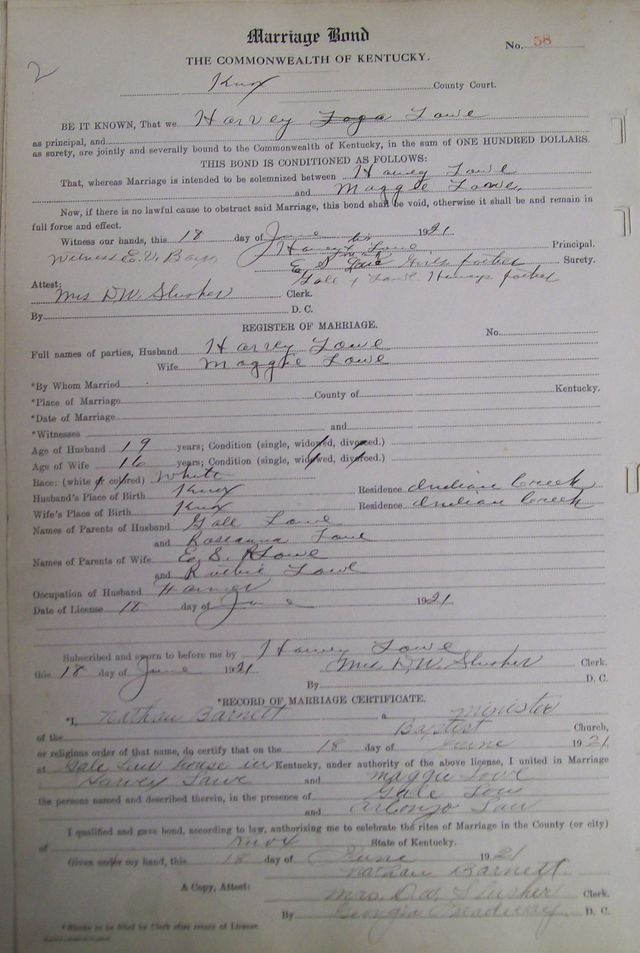 Marriage Bond
No. 58
2
THE COMMONWEALTH OF KENTUCKY.
Knox County Court.
BE IT KNOWN, That we Harvey Lowe
as principal, and
as surety, are jointly and severally bound to the Commonwealth of Kentucky, in the sum of ONE HUNDRED DOLLARS.
THIS BOND IS CONDITIONED AS FOLLOWS:
That, whereas Marriage is intended to be solemnized between Harvey Lowe
and Maggie Lowe.
Now, if there is no lawful cause to obstruct said Marriage, this bond shall be void, otherwise it shall be and remain in
full force and effect.
Witness our hands, this 18 day of June 1921
Harvey Lowe Principal.
Witness E. V. Bays E. S. Lowe Girls father Surety.
Gale Lowe Harveys father
Attest: Mrs D.W. Slusher Clerk.
By D. C.
REGISTER OF MARRIAGE.
No.
Full names of parties, Husband Harvey Lowe
Wife Maggie Lowe
*By Whom Married
*Place of Marriage County of Kentucky.
*Date of Marriage
*Witnesses and
Age of Husband 19 years; Condition (single, widowed, divorced.)
Age of Wife 16 years; Condition (single, widowed, divorced.)
Race: (white or colored) White
Husband's Place of Birth Knox Residence Indian Creek
Wife's Place of Birth Knox Residence Indian Creek
Names of Parents of Husband Gale Lowe
and Roseanna Lowe
Names of Parents of Wife E. S. Lowe
and Ruthie Lowe
Occupation of Husband Farmer
Date of License 18 day of June 1921
Subscribed and sworn to before me by Harvey Lowe
this 18 day of June 1921 Mrs D.W. Slusher Clerk.
By D. C.
*RECORD OF MARRIAGE CERTIFICATE.
*I, Nathan Barnett a Minister
of the Baptist Church,
or religious order of that name, do certify that on the 18 day of June 1921
at Gale Law house in Kentucky, under authority of the above license, I united in Marriage
Harvey Lawe and Maggie Lowe
the persons named and described therein, in the presence of Gale Low
and Alonzo Law
I qualified and gave bond, according to law, authorizing me to celebrate the rites of Marriage in the County (or city)
of Knox State of Kentucky.
Given under my hand, this 18 day of June 1921
Nathan Barnett
A Copy, Attest: Mrs. D.W. Slusher Clerk.
By Georgia D. C.
*Blanks to be filled by Clerk after return of License.